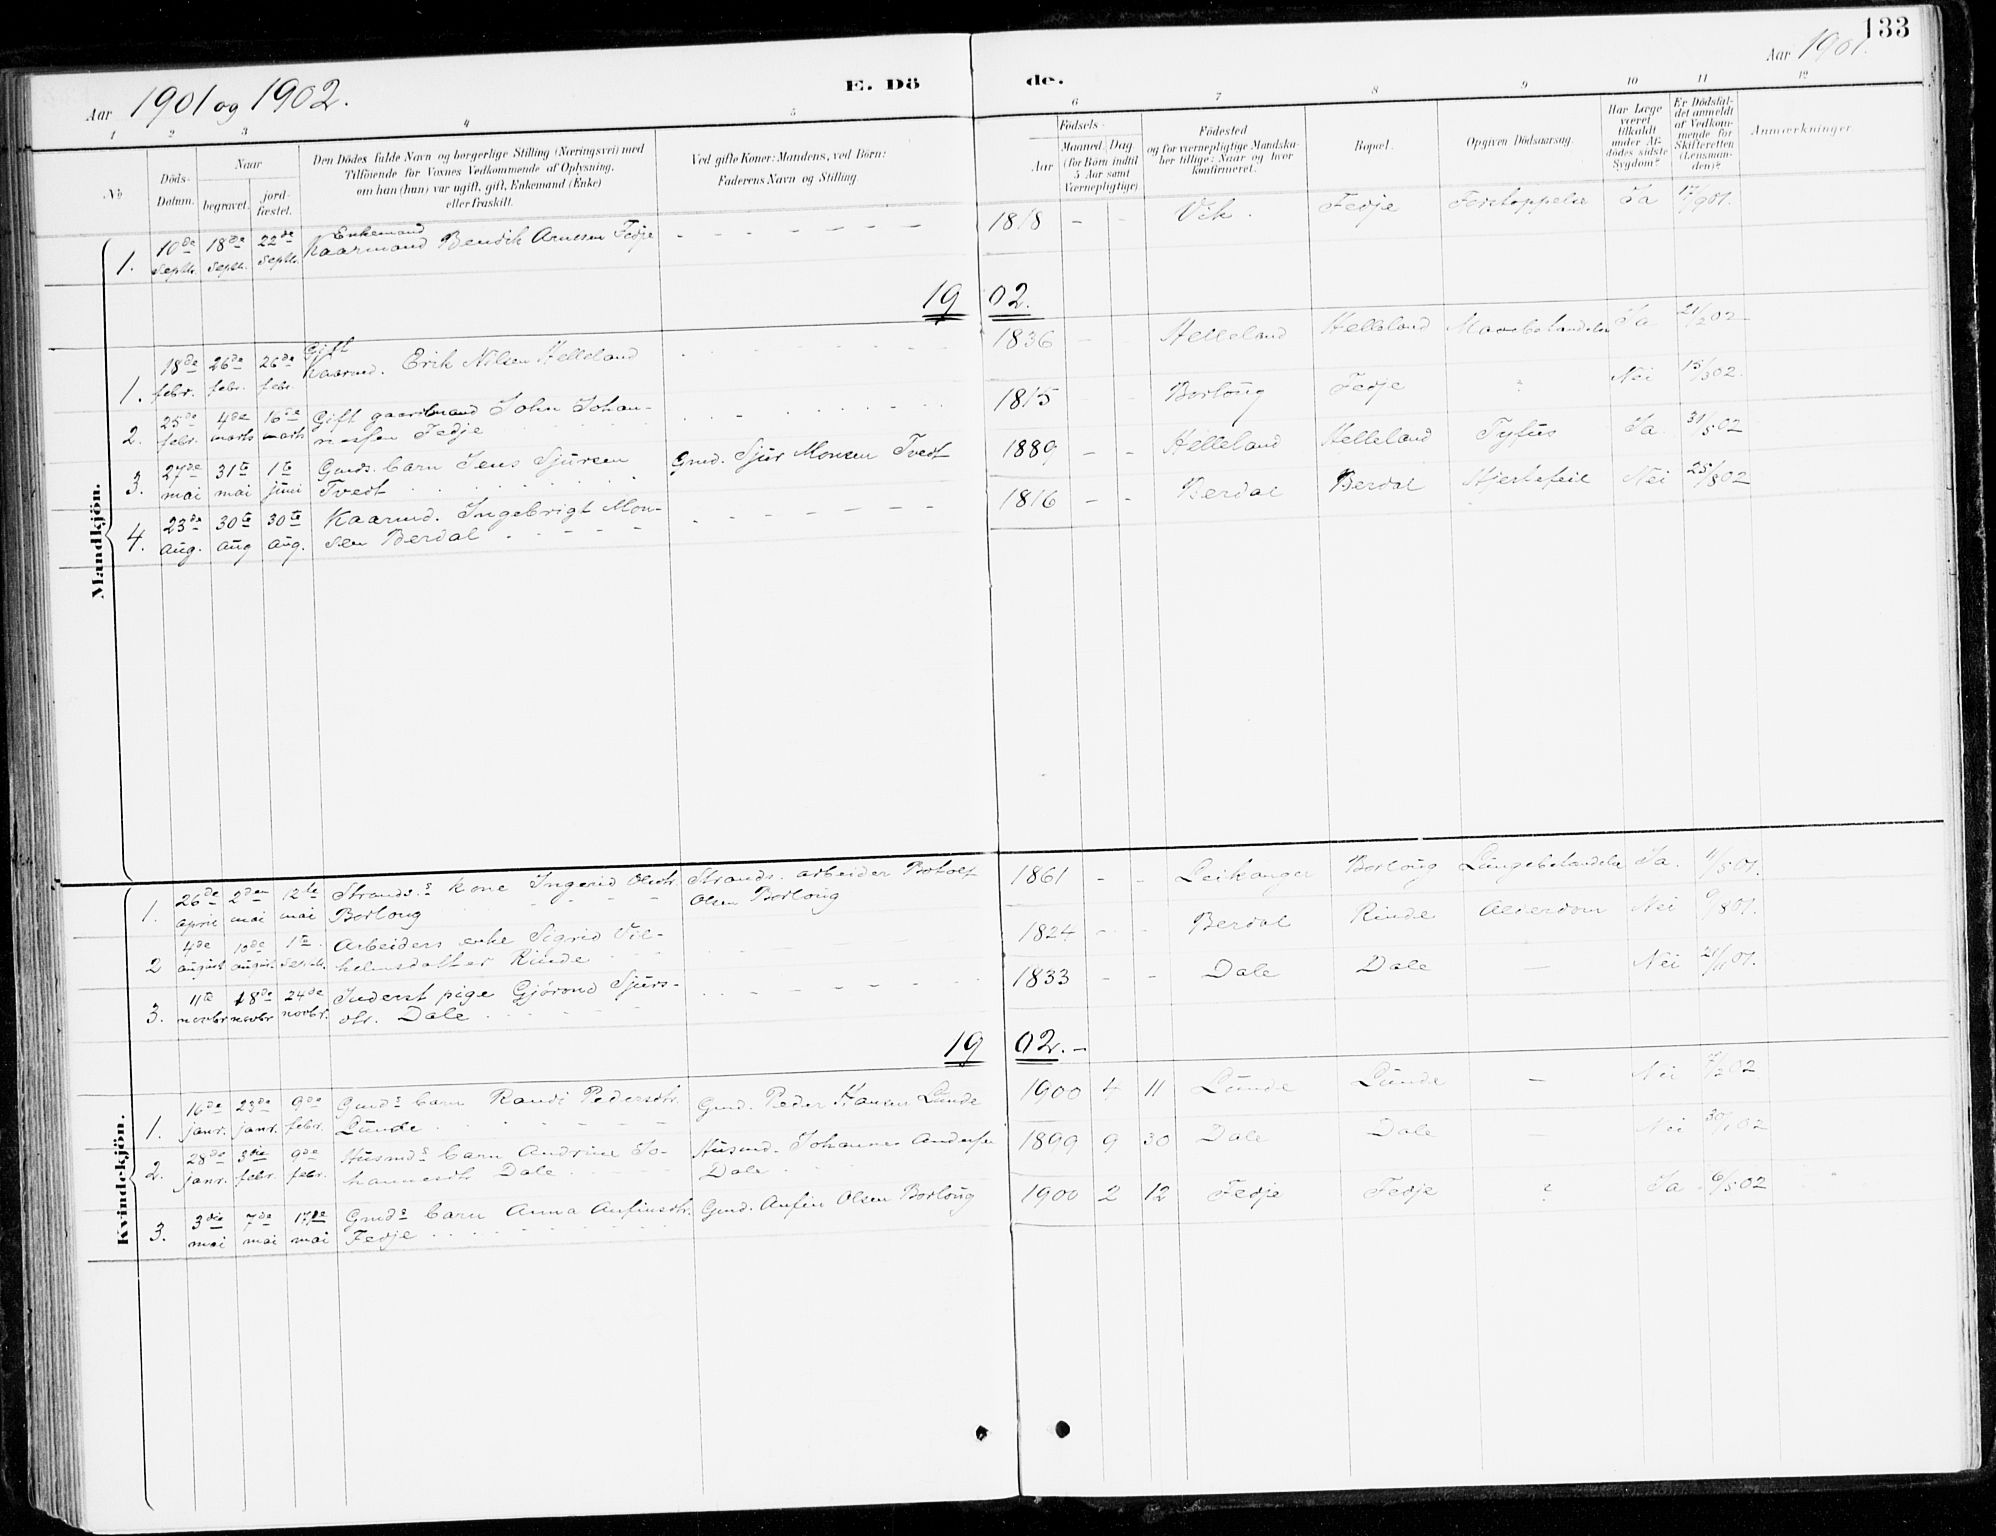 133
Aar 1901 og 1902.
E. Dö
de.
Aar 1901.
1 2 3 4 5 6 7 8 9 10 11 12
No
Döds-
Datum.
Naar
begravet.
jord-
fæstet.
Den Dödes fulde Navn og borgerlige Stilling (Næringsvei) med
Tilföiende for Voxnes Vedkommende af Oplysning,
om han (hun) var ugift, gift, Enkemand (Enke)
eller fraskilt.
Ved gifte Koner: Mandens, ved Börn:
Faderens Navn og Stilling.
Födsels-
Aar
Maaned Dag
(for Börn indtil
5 Aar samt
Værnepligtige)
Födested
og for værnepligtige Mandska-
ber tillige: Naar og hvor
konfirmeret.
Bopæl.
Opgiven Dödsaarsag.
Har Læge
været
tilkaldt
under Af-
dödes sidste
Sygdom?
Er Dödsfal-
det anmeldt
af Vedkom-
mende for
Skifteretten
(Lensman-
den)?
Anmærkninger
Mandkjön.
Enkemand
1. 10de septb. 18de septb. 22de septb. Kaarmand Bendik Arnesen Fedje - - - - - - - 1818 - - Vik. Fedje Ja 17/9 01.
19 02.
Gift
1. 18de febr. 26de febr. 26de febr. Kaarmd. Erik Nilsen Helleland 1836 - - Helleland Helleland Ja 21/2 02
2. 25de febr. 4de marts 16de marts Gift gaardmand John Johan-
nessen Fedje 1815 Borlaug Fedje ? Nei 15/3 02.
3. 27de mai 31te mai 1te juni Gmds. barn Jens Sjursen
Tvedt Gmd. Sjur Monsen Tvedt 1889 - - Helleland Helleland Tyfus Ja. 31/5 02
4. 23de aug. 30te aug 30te aug. Kaarmd. Ingebrigt Mon-
sen Berdal 1816 - - Berdal Berdal Hjertefeil Nei 25/8 02
Kvindekjön.
1. 26de april 2den mai 12te mai Strands.s kone Ingerid Olsdtr.
Borlaug Strands. arbeider Botolf
Olsen Borlaug 1861 - - Leikanger Borlaug Ja. 11/5 01.
2 4de august 10de august 1te septb. Arbeiders enke Sigrid Vil-
helmsdatter Rinde 1824 - - Berdal Rinde Alderdom Nei 9/8 01.
3. 11te novbr 18de novbr 24de novbr. Inderst pige Gjörond Sjurs-
dtr. Dale 1833 - - Dale Dale - Nei 21/11 01.
19 02. -
1. 16de janr. 23de janr. 9de febr. Gmds barn Randi Pedersdtr.
Lunde Gmd. Peder Hansen Lunde 1900 4 11 Lunde Lunde - Nei 7/2 02
2. 28de janr. 3die febr. 9de febr. Husmds barn Andrine Jo-
hannesdtr Dale Husmd. Johannes Andersen
Dale 1899 9 30 Dale Dale Nei 30/1 02
3. 3die mai 7de mai 17de mai Gmds barn Anna Anfinsdtr.
Fedje Gmd. Anfin Olsen Borlaug 1900 2 12 Fedje Fedje ? Ja 6/5 02